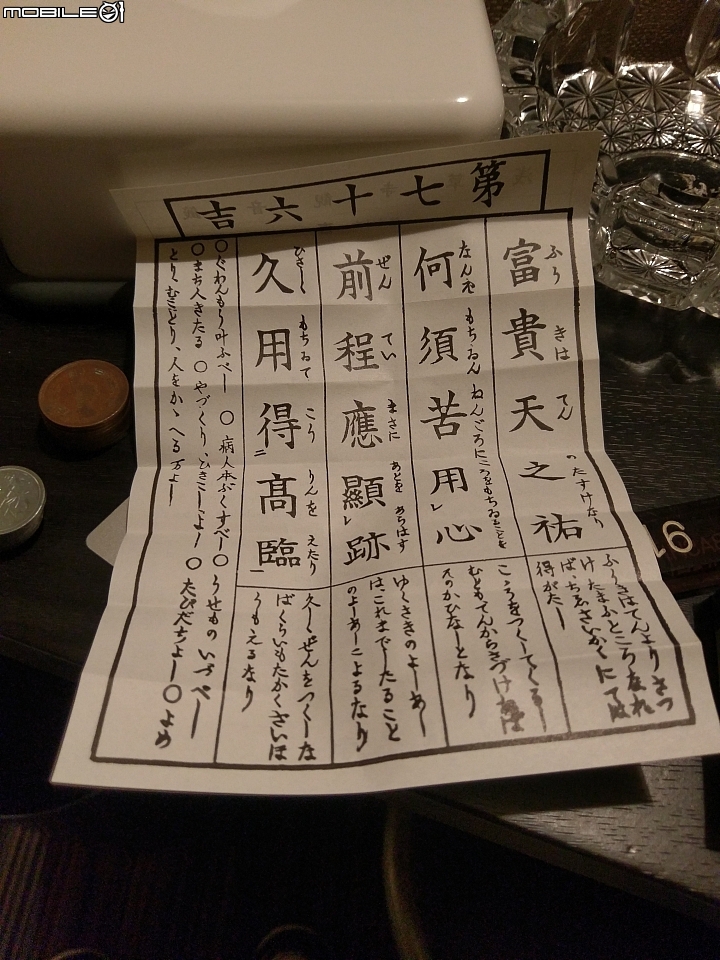 MOBILE01
第七十六吉
富貴天之祐
ふうきはてんのたすけなり
何須苦用心
なんぞもちゐんねんごろにこゝろをもちゐることを
前程應顯跡
ぜんていまさにあとをあらはす
久用得髙臨
ひさしくもちゐてこうりんをえたり
ふうきはてんよりさづ
けたまふところなれ
ばちゑさいかくにては
得がたし
こゝろをつくしてくるし
むともてんからさづけねば
そのかひなしとなり
ゆくさきのよしあし
はこれまでしたること
のよしあしによるなり
久しくぜんをつくしな
ばくらいもたかくさいは
うもえるなり
〇ぐわんもう叶ふべし 〇病人本ぶくすべし〇うせものいづべし
〇まち人きたる 〇やづくり、ひきこしよし〇たびだちよし〇よめ
とり、むことり、人をかゝへる万よし
16